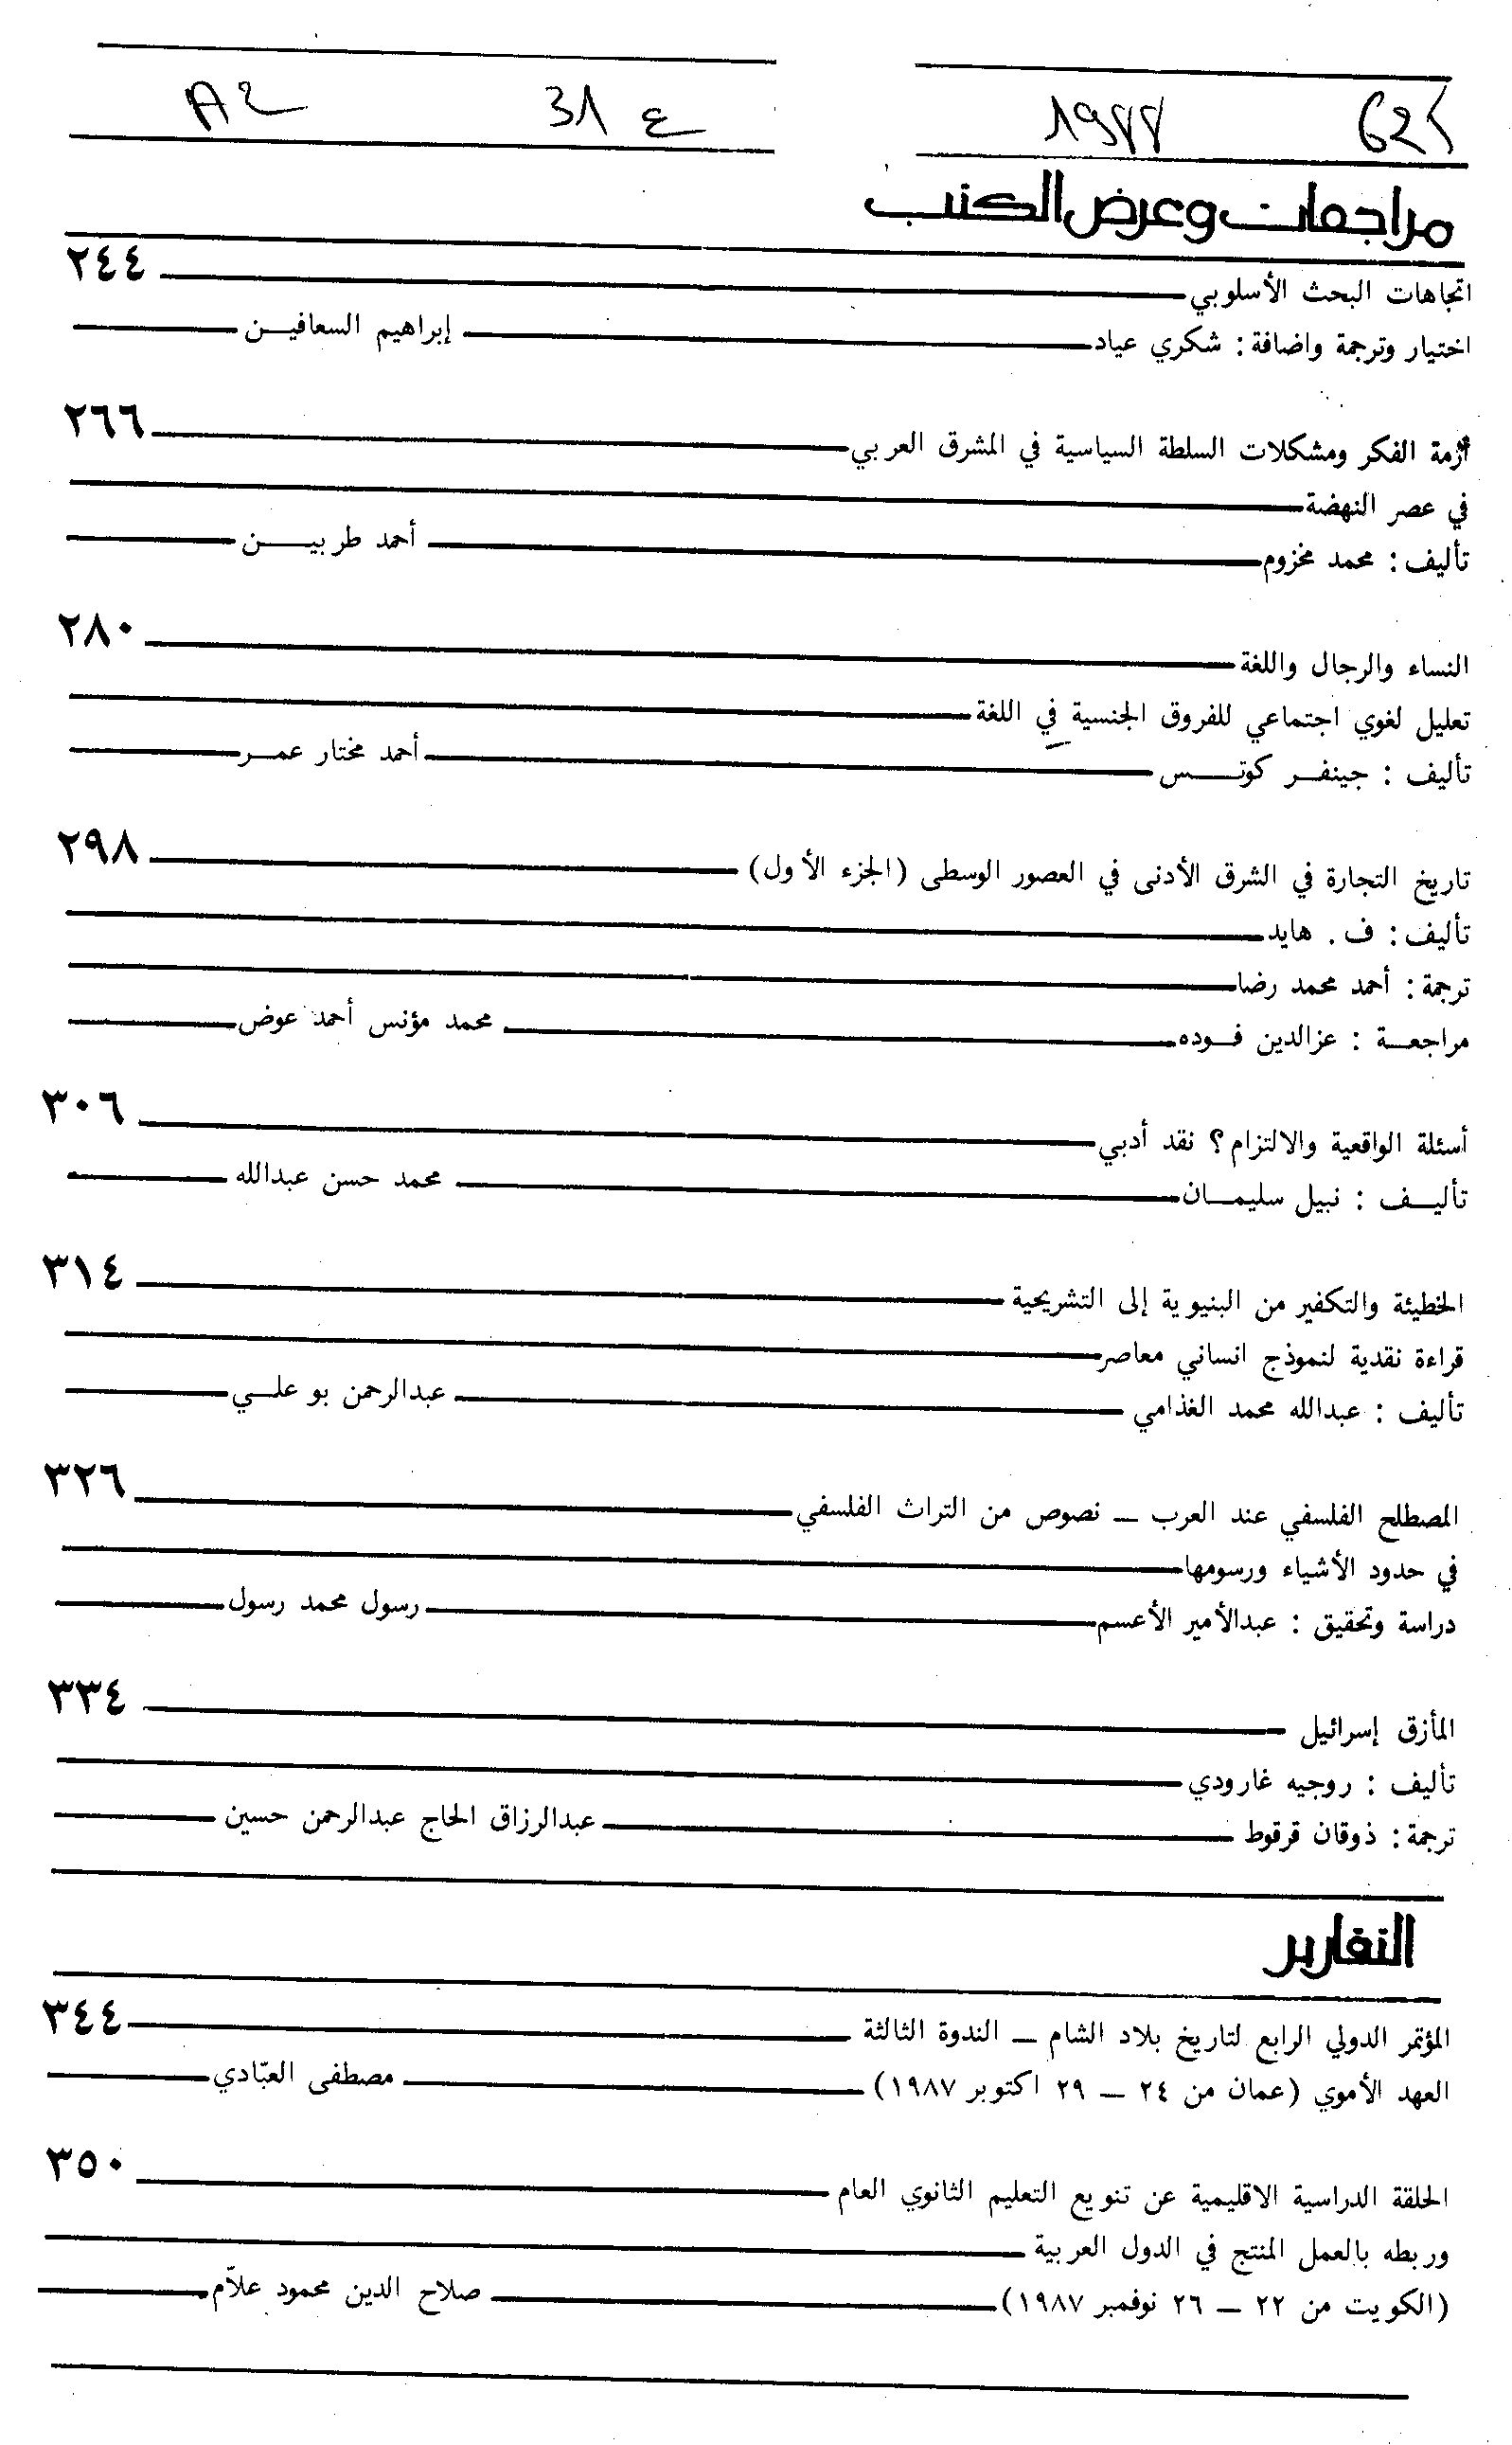 مراجعات وعرض الكتب
اتجاهات البحث الأسلوبي ٢٤٤
اختيار وترجمة واضافة: شكري عياد إبراهيم السعافيـن
أزمة الفكر ومشكلات السلطة السياسية في المشرق العربي ٢٦٦
في عصر النهضة
تأليف: محمد مخزوم أحمد طربيـــن
النساء والرجال واللغة ٢٨٠
تعليل لغوي اجتماعي للفروق الجنسية في اللغة
تأليف : جينفـر كوتــس أحمد مختار عمـر
تاريخ التجارة في الشرق الأدنى في العصور الوسطى (الجزء الأول) ٢٩٨
تأليف: ف. هايد
ترجمة: أحمد محمد رضا
مراجعـة : عزالدين فـوده محمد مؤنس أحمد عوض
أسئلة الواقعية والالتزام؟ نقد أدبي ٣٠٦
تأليـف : نبيل سليمـان محمد حسن عبدالله
الخطيئة والتكفير من البنيوية إلى التشريحية ٣١٤
قراءة نقدية لنموذج انساني معاصر
تأليف : عبدالله محمد الغذامي عبدالرحمن بو علـي
المصطلح الفلسفي عند العرب ـ نصوص من التراث الفلسفي ٣٢٦
في حدود الأشياء ورسومها
دراسة وتحقيق : عبدالأمير الأعسم رسول محمد رسول
المأزق إسرائيل ٣٣٤
تأليف : روجيه غارودي
ترجمة: ذوقان قرقوط عبدالرزاق الحاج عبدالرحمن حسين
التقارير
المؤتمر الدولي الرابع لتاريخ بلاد الشام ـ الندوة الثالثة ٣٤٤
العهد الأموي (عمان من ٢٤ ـ ٢٩ اكتوبر ١٩٨٧) مصطفى العبّادي
الحلقة الدراسية الاقليمية عن تنويع التعليم الثانوي العام ٣٥٠
وربطه بالعمل المنتج في الدول العربية
(الكويت من ٢٢ ـ ٢٦ نوفمبر ١٩٨٧) صلاح الدين محمود علاّم